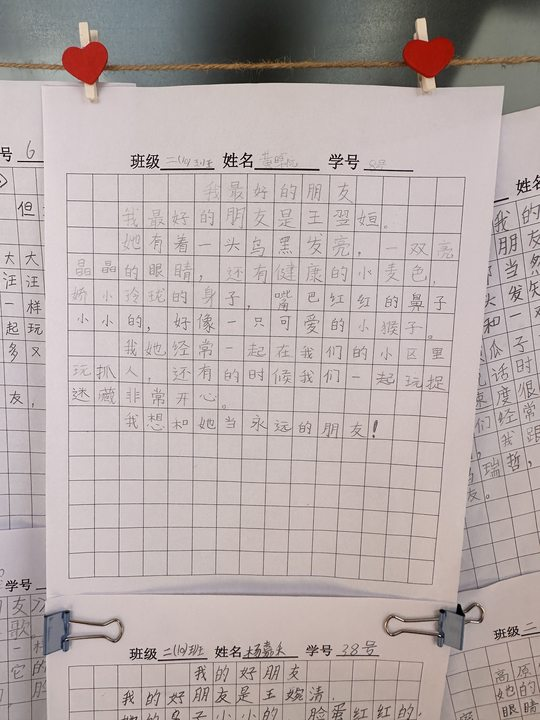 班级 二(10)班 姓名 学号
我最好的朋友
我最好的朋友是王翌姮。
她有着一头乌黑发亮，一双亮
晶晶的眼睛，还有健康的小麦色，
娇小玲珑的身子，嘴巴红红的鼻子
小小的，好像一只可爱的小猴子。
我她经常一起在我们的小区里
玩扒人，还有的时候我们一起玩捉
迷藏非常开心。
我想和她当永远的朋友！
班级 二(10)班 姓名 杨嘉 学号 38号
我的好朋友
我的好朋友是王婉清，
小小的 脸蛋红红的，
号 6
但
大大
汪汪
一样
起玩
多又
友，
学号
友
歌
一样
它的
姓名
我的
朋友
当然
头发
和一双
瓜子
说话时
速度很
们经常
，我跟
瑞哲，
友。
班级 二
高原
她的
眼睛